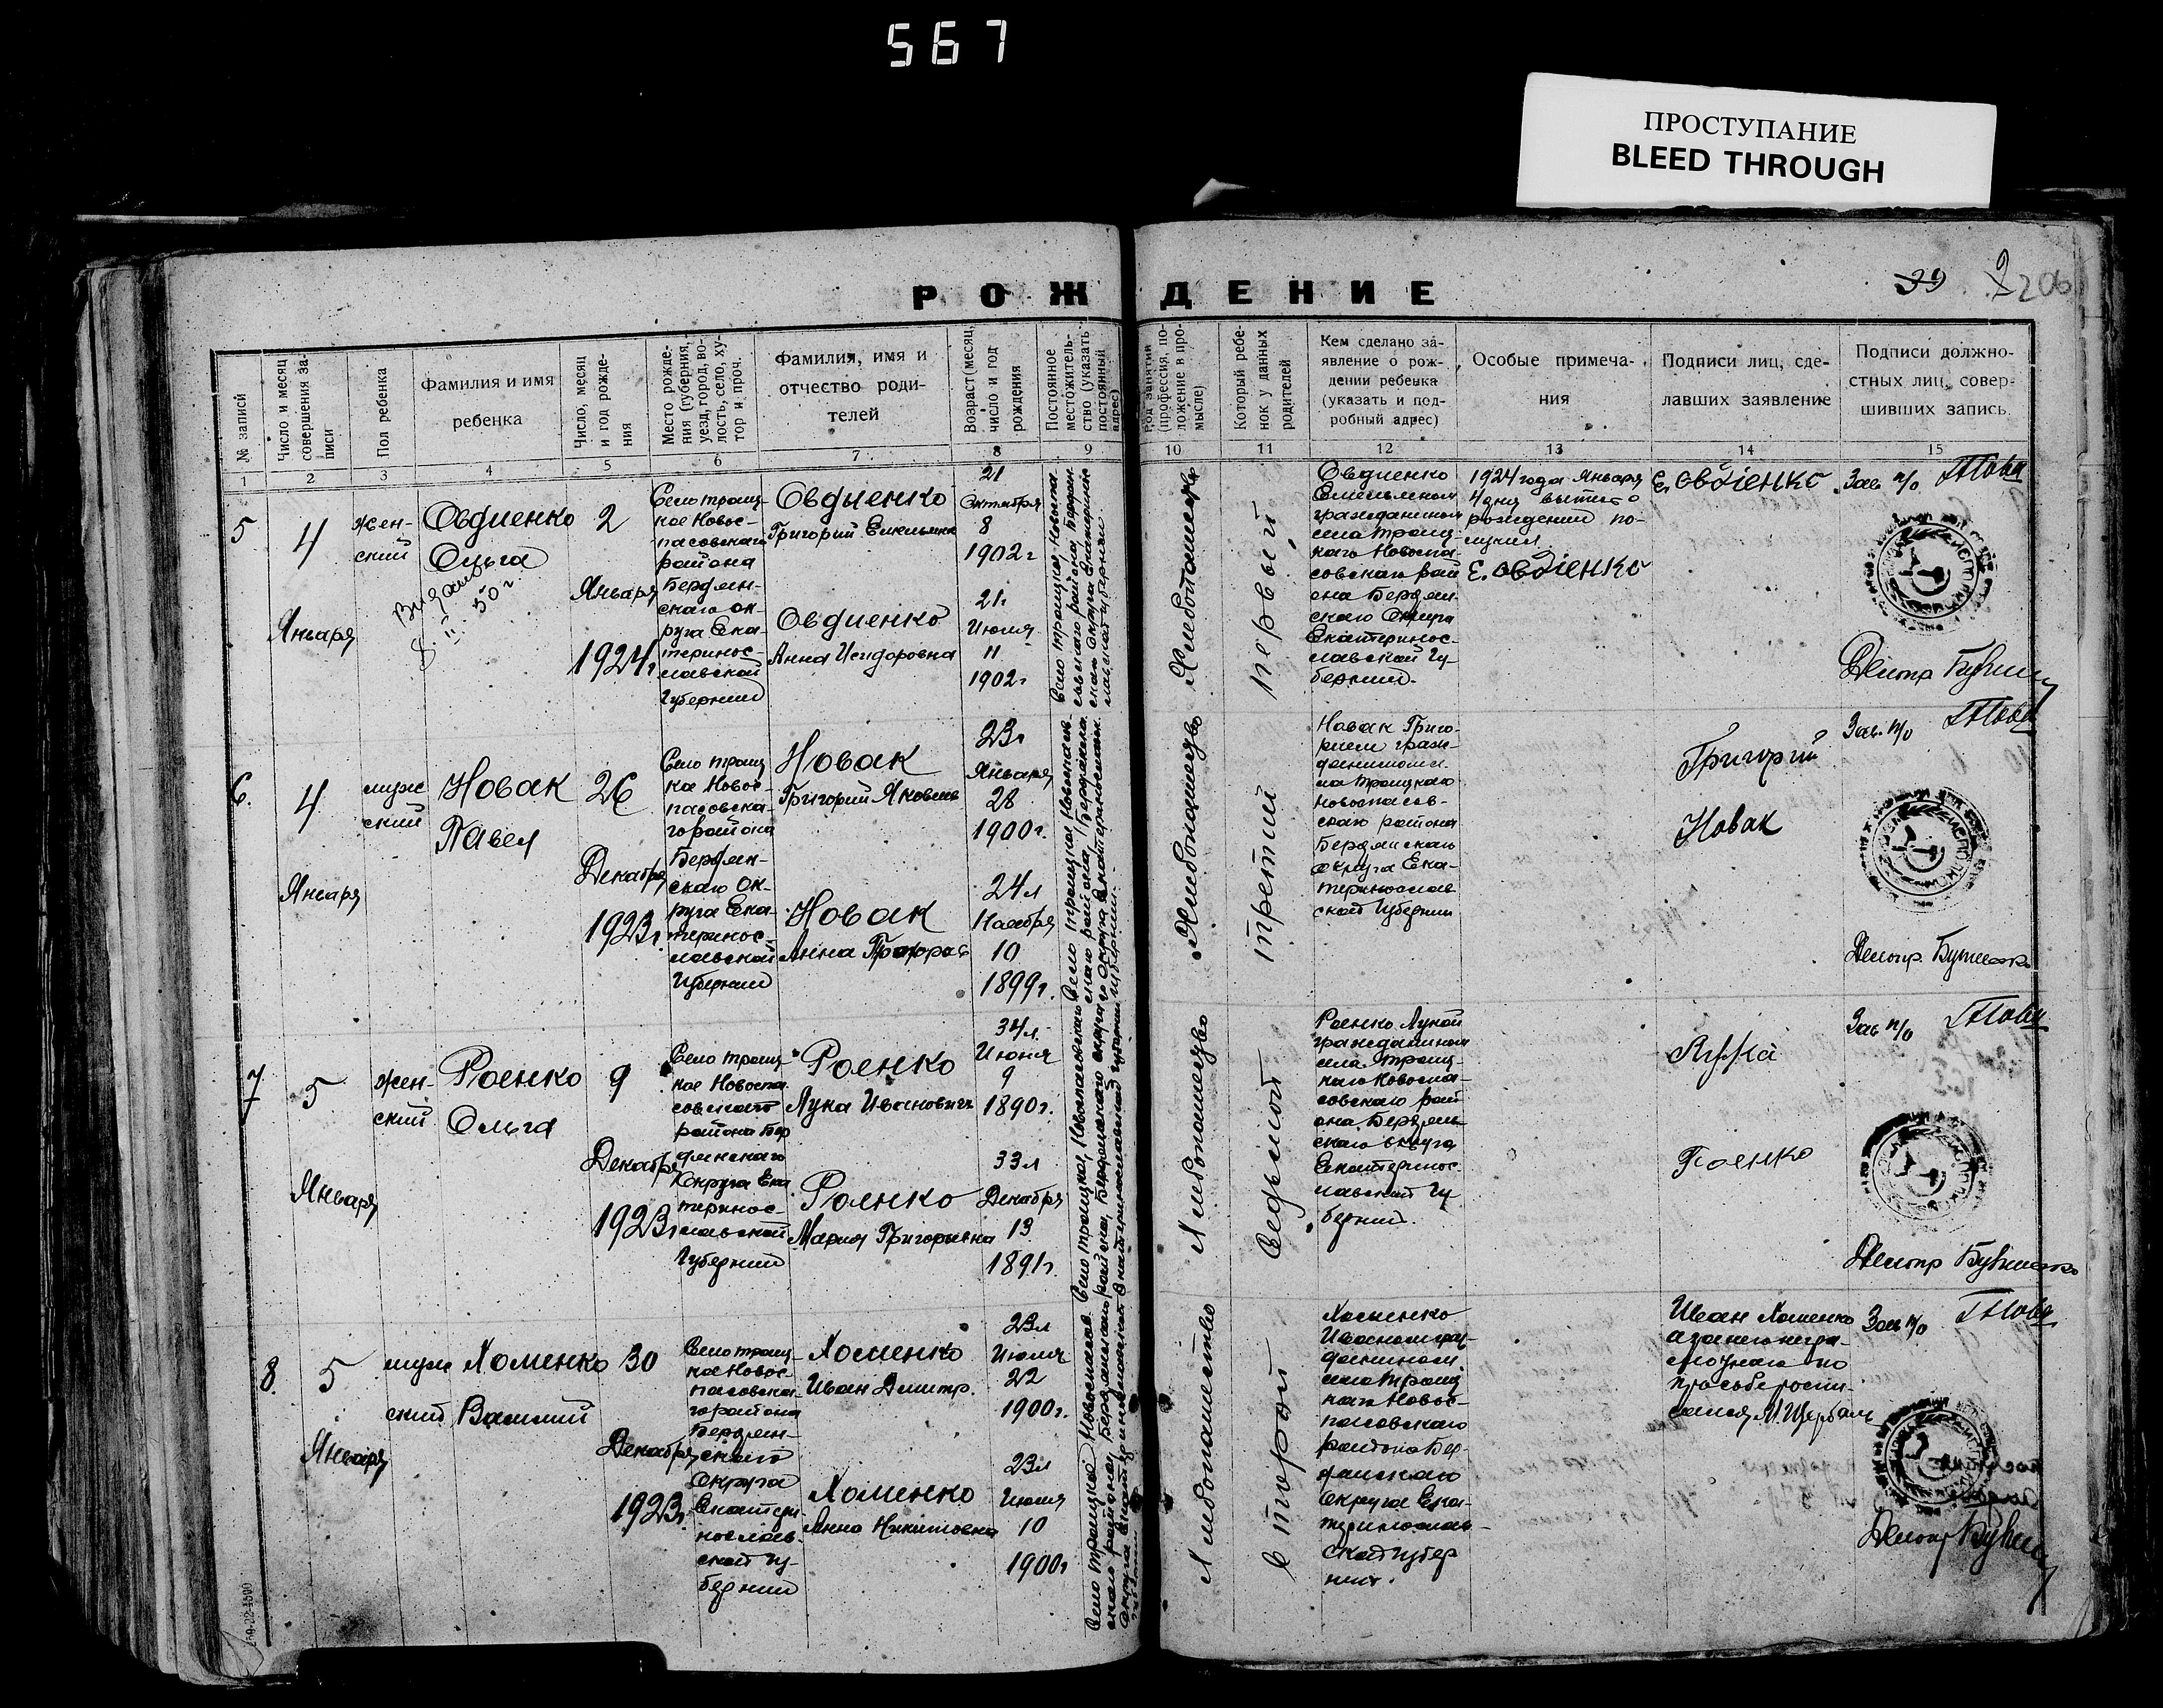 567
ПРОСТУПАНИЕ
BLEED THROUGH
РОЖДЕНИЕ
39 2 206
№ записи
Число и месяц совершения записи
Пол ребенка
Фамилия и имя ребенка
Число, месяц и год рождения
Место рождения (губерния, уезд, город, волость, село, хутор и проч.
Фамилия, имя и отчество родителей
Возраст (месяц, число и год рождения
Постоянное местожительство (указать постоянный адрес)
Род занятий (профессия, положение в промысле)
Который ребенок у данных родителей
Кем сделано заявление о рождении ребенка (указать и подробный адрес)
Особые примечания
Подписи лиц, сделавших заявление
Подписи должностных лиц, совершивших запись.
1 2 3 4 5 6 7 8 9 10 11 12 13 14 15
5
4
Января
жен-
ский
Овдиенко
Ольга
8. II. 50 г.
2
Января
1924г
Село троиц-
кое Новос-
пасовского
района
Бердян-
ского ок-
руга Ека-
теринос-
лавской
Губернии
Овдиенко
Григорий Емельянов
Овдиенко
Анна Исидоровна
21
Октября
8
1902г
21г
Июля
11
1902г
Хлебопашество
первый
Овдиенко
Емельяном
гражданином
села Троиц-
каго Новоспа-
совскаго рай
она Бердян-
скаго Округа
Екатеринос-
лавской Гу-
бернии.
1924 года Января
4 дня выпись о
рождении по-
лучил
Е. Овдіенко
Е. Овдіенко
Зав. п/о
6.
4
Января
муж
ский
Новак
Павел
26
Декабря
1923г.
Село троиц
кое Новос-
пасовска-
го района
Бердян-
скаго Ок-
руга Ека-
теринос-
лавской
Губернии
Новак
Григорий Яковлев
Новак
Анна
23г
Января
28
1900г.
24л
Ноября
10
1899г.
Хлебопашество
третий
Новак Григо-
рием граж-
данином се-
ла Троицкаго
Новоспасов-
скаго района
Бердянскаго
Округа Ека-
теринослав
ской Губернии
Григорий
Новак
Зав. п/о
7
5
Января
жен-
ский
Роенко
Ольга
9
Декабря
1923г
Село троиц-
кое Новоспа
совскаго
района Бер
дянскаго
Округа Ека
теринос-
лавской
Губернии
Роенко
Лука Иванович
Роенко
Мария Григорьевна
34л.
Июня
9
1890г.
33л
Декабря
13
1891г.
Хлебопашество
Седьмой
Роенко Лукой
гражданином
села Троиц-
каго Новоспа-
совскаго рай
она Бердян-
скаго округа
Екатеринос-
лавской Гу-
бернии.
Лука
Роенко
Зав п/о
8.
5
Января
муж
ский
Хоменко
Василий
30
Декабря
1923г.
Село троиц-
кое Новос-
пасовска-
го района
Бердян-
скаго
Округа
Екатери-
нослав-
ской Гу-
бернии
Хоменко
Иван Дмитр.
Хоменко
Анна Никитовна
23л
Июля
22
1900г.
23л
Июля
10
1900г
Хлебопашество
Второй
Хоменко
Иваном граж-
данином
села Троиц
каго Новос-
пасовскаго
района Бер-
дянскаго
Округа Ека-
теринослав-
ской Губер
нии.
Иван Хоменко
а за него негра-
мотнаго по
просьбе роспи-
сался
Зав п/о